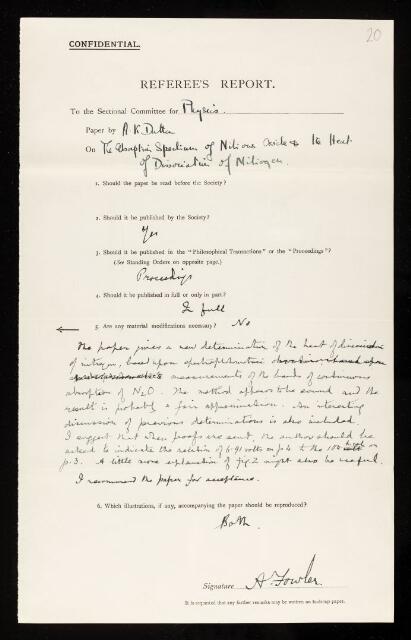 20
CONFIDENTIAL.
REFEREE'S REPORT.
To the Sectional Committee for Physics
Paper by A K Dutta
On The Absorption Spectrum of Nitrous Oxide & the Heat
of Dissociation of Nitrogen.
1. Should the paper be read before the Society?
2. Should it be published by the Society?
Yes
3. Should it be published in the "Philosophical Transactions" or the "Proceedings"?
(See Standing Orders on opposite page.)
Proceedings
4. Should it be published in full or only in part?
In full
5. Are any material modifications necessary? No
The paper gives a new determination of the heat of dissociation
of nitrogen, based upon spectrophotometric
measurements of the bands of continuous
absorption of N2O. The method appears to be sound and the
result is probably a fair approximation. An interesting
discussion of previous determinations is also included.
I suggest that when proofs are sent, the author should be
asked to indicate the relation of 6.91 volts on p.4 to the on
p.3. A little more explanation of fig. 2 might also be useful.
I recommend the paper for acceptance.
6. Which illustrations, if any, accompanying the paper should be reproduced?
Both.
Signature A. Fowler
It is requested that any further remarks may be written on foolscap paper.